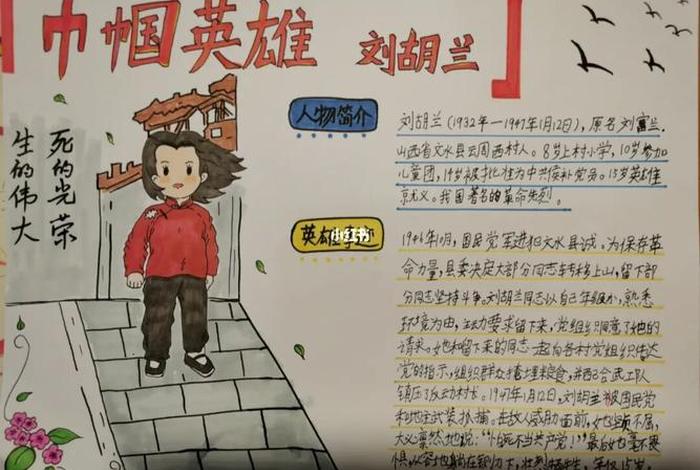 巾帼英雄 刘胡兰
生的伟大
死的光荣
人物简介
刘胡兰(1932年—1947年1月12日),原名刘富兰.
山西省文水县云周西村人。8岁上村小学,10岁参加
儿童团,14岁被批准为中共候补党员。15岁英雄
就义。我国著名的革命先烈。
英雄事迹
小红书
1946年10月,国民党军进犯文水县城。为保存革
命力量,县委决定大部分同志转移上山,留下部
分同志坚持斗争。刘胡兰同志以自己年纪小,熟悉
环境为由,主动要求留下来,党组织同意了她的
请求。她和留下来的同志一起向各村党组织传达
党的指示,组织群众掩埋粮食,并配合武工队
镇压了反动村长。1947年1月12日,刘胡兰被国民党
和地主武装抓捕。在敌人威胁面前,她坚贞不屈,
大义凛然地说:"怕死不当共产党!"最后她毫不畏
惧,从容地躺在铡刀下,